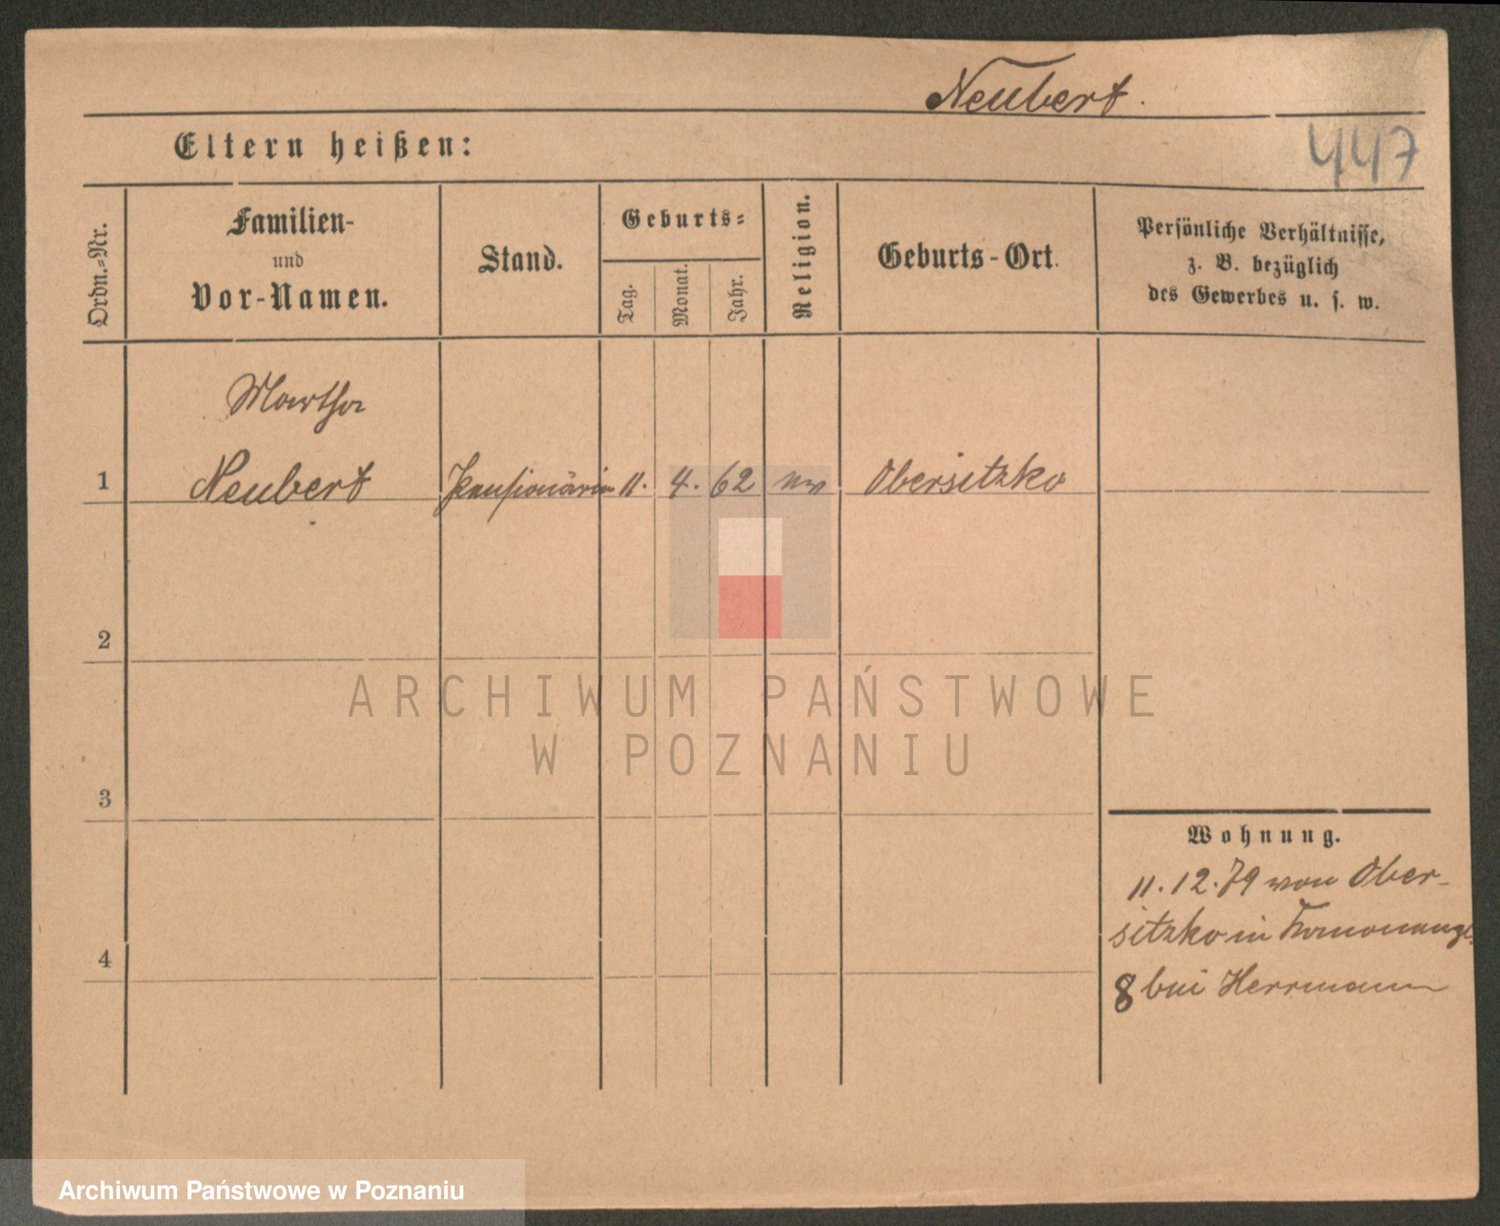 Neubert.
447
Eltern heißen:
Ordn.-Nr.
Familien-
und
Vor-Namen.
Stand.
Geburts-
Tag.
Monat.
Jahr.
Religion.
Geburts-Ort.
Persönliche Verhältnisse,
z. B. bezüglich
des Gewerbes u. s. w.
Martha
1 Neubert Pensionärin 11. 4. 62 Obersitzko
2
3
4
Wohnung.
11.12.79 von Ober-
sitzko in
8 bei Herrmann
ARCHIWUM PAŃSTWOWE
W POZNANIU
Archiwum Państwowe w Poznaniu